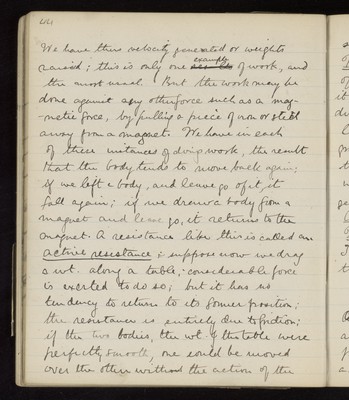 We have thus velocity generated or weights
raised; this is only one example of work, and
the most usual. But the work may be
done against any other force such as a mag-
-netic force, by pulling a piece of iron or steel
away from a magnet. We have in each
of these instances of doing work, the result
that the body tends to move back again;
if we left a body, and leave go of it, it
fall again; if we draw a body from a
magnet and leave go, it returns to the
magnet. A resistance like this is called an
active resistance; suppose now we drag
a wt. along a table; considerable force
is exerted to do so; but it has no
tendency to return to its former position;
the resistance is entirely due to friction;
if the two bodies, the wt. & the table were
perfectly smooth, one could be moved
over the other without the action of the